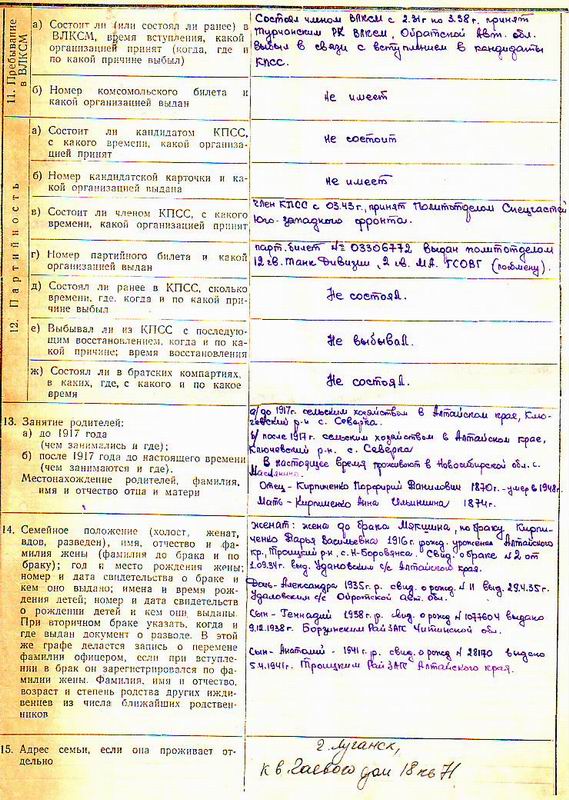 11. Пребывание в ВЛКСМ
а) Состоит ли (или состоял ранее) в
ВЛКСМ, время вступления, какой
организацией принят (когда, где и
по какой причине выбыл)
Состоял членом ВЛКСМ с 2.31г по 3.38г. принят
РК ВЛКСМ, Ойратской Авт. обл.
Выбыл в связи с вступлением в кандидаты
КПСС.
б) Номер комсомольского билета и
какой организацией выдан
Не имеет
12. Партийность
а) Состоит ли кандидатом КПСС,
с какого времени, какой организа-
цией принят
Не состоит
б) Номер кандидатской карточки и ка-
кой организацией выдана
Не имеет
в) Состоит ли членом КПСС, с какого
времени, какой организацией принят
Член КПСС с 03.43г., принят Политотделом Спецчастей
Юго-западного фронта.
г) Номер партийного билета и какой
организацией выдан
парт. билет № 03306772 выдан политотделом
12 гв. Танк Дивизии, 2 гв. МА. ГСОВГ (по обмену).
д) Состоял ли ранее в КПСС, сколько
времени, где, когда и по какой при-
чине выбыл
Не состоял.
е) Выбывал ли из КПСС с последую-
щим восстановлением, когда и по ка-
кой причине; время восстановления
Не выбывал.
ж) Состоял ли в братских компартиях,
в каких, где, с какого и по какое
время
Не состоял.
13. Занятие родителей:
а) до 1917 года
(чем занимались и где);
б) после 1917 года до настоящего времени
(чем занимаются и где).
Местонахождение родителей, фамилия,
имя и отчество отца и матери
а/ до 1917г. сельским хозяйством в Алтайском крае, Клю-
чевский р-н с. Северка.
б/ после 1917г. сельским хозяйством в Алтайском крае,
Ключевский р-н. с. Северка
В настоящее время проживают в Новосибирской обл. с.
Отец - Кирпиченко Порфирий Данилович 1870г. - умер в 1948г.
Мать - Кирпиченко Анна Ильинична 1874г.
14. Семейное положение (холост, женат,
вдов, разведен), имя, отчество и фа-
милия жены (фамилия до брака и по
браку); год и место рождения жены;
номер и дата свидетельства о браке и
кем оно выдано; имена и время рож-
дения детей; номер и дата свидетельств
о рождении детей и кем они выданы.
При вторичном браке указать, когда и
где выдан документ о разводе. В этой
же графе делается запись о перемене
фамилии офицером, если при вступле-
нии в брак он зарегистрировался по фа-
милии жены. Фамилия, имя и отчество,
возраст и степень родства других ижди-
венцев из числа ближайших родствен-
ников
Женат: жена до брака Мякшина, по браку Кирпи-
ченко Дарья Васильевна 1916г. рожд. уроженка Алтайского
кр., Троицкий р-н, с. Н-Боровянка. Свид. о браке № 2 от
1.09.34г. выд. Удаловский с/с Алтайского края.
Дочь - Александра 1935г. р. свид. о рожд. № 11 выд. 29.4.35г.
Удаловским с/с Ойротской авт. обл.
Сын - Геннадий 1938г. р. свид. о рожд № 1077604 выдано
9.12.1938г. Борзинским РайЗАГС Читинской обл.
Сын - Анатолий - 1941г. р. свид. о рожд № 28170 выдано
5.4.1941г. Троицким РайЗАГС Алтайского края.
15. Адрес семьи, если она проживает от-
дельно
г. Луганск,
кв. Гаевого дом 18 кв 71